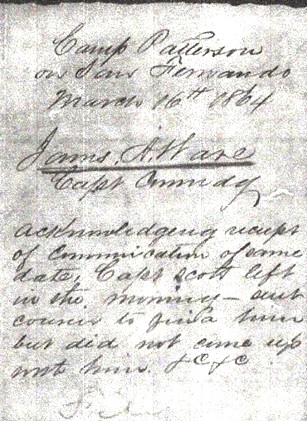 Camp Patterson
on San Fernando
March 16th 1864
James. A. Ware
Capt Commdg
acknowledgeing receipt
of Communication of same
date, Capt Scott left
in the morning – sent
courier to find him
but did not come up
with him. &C &C